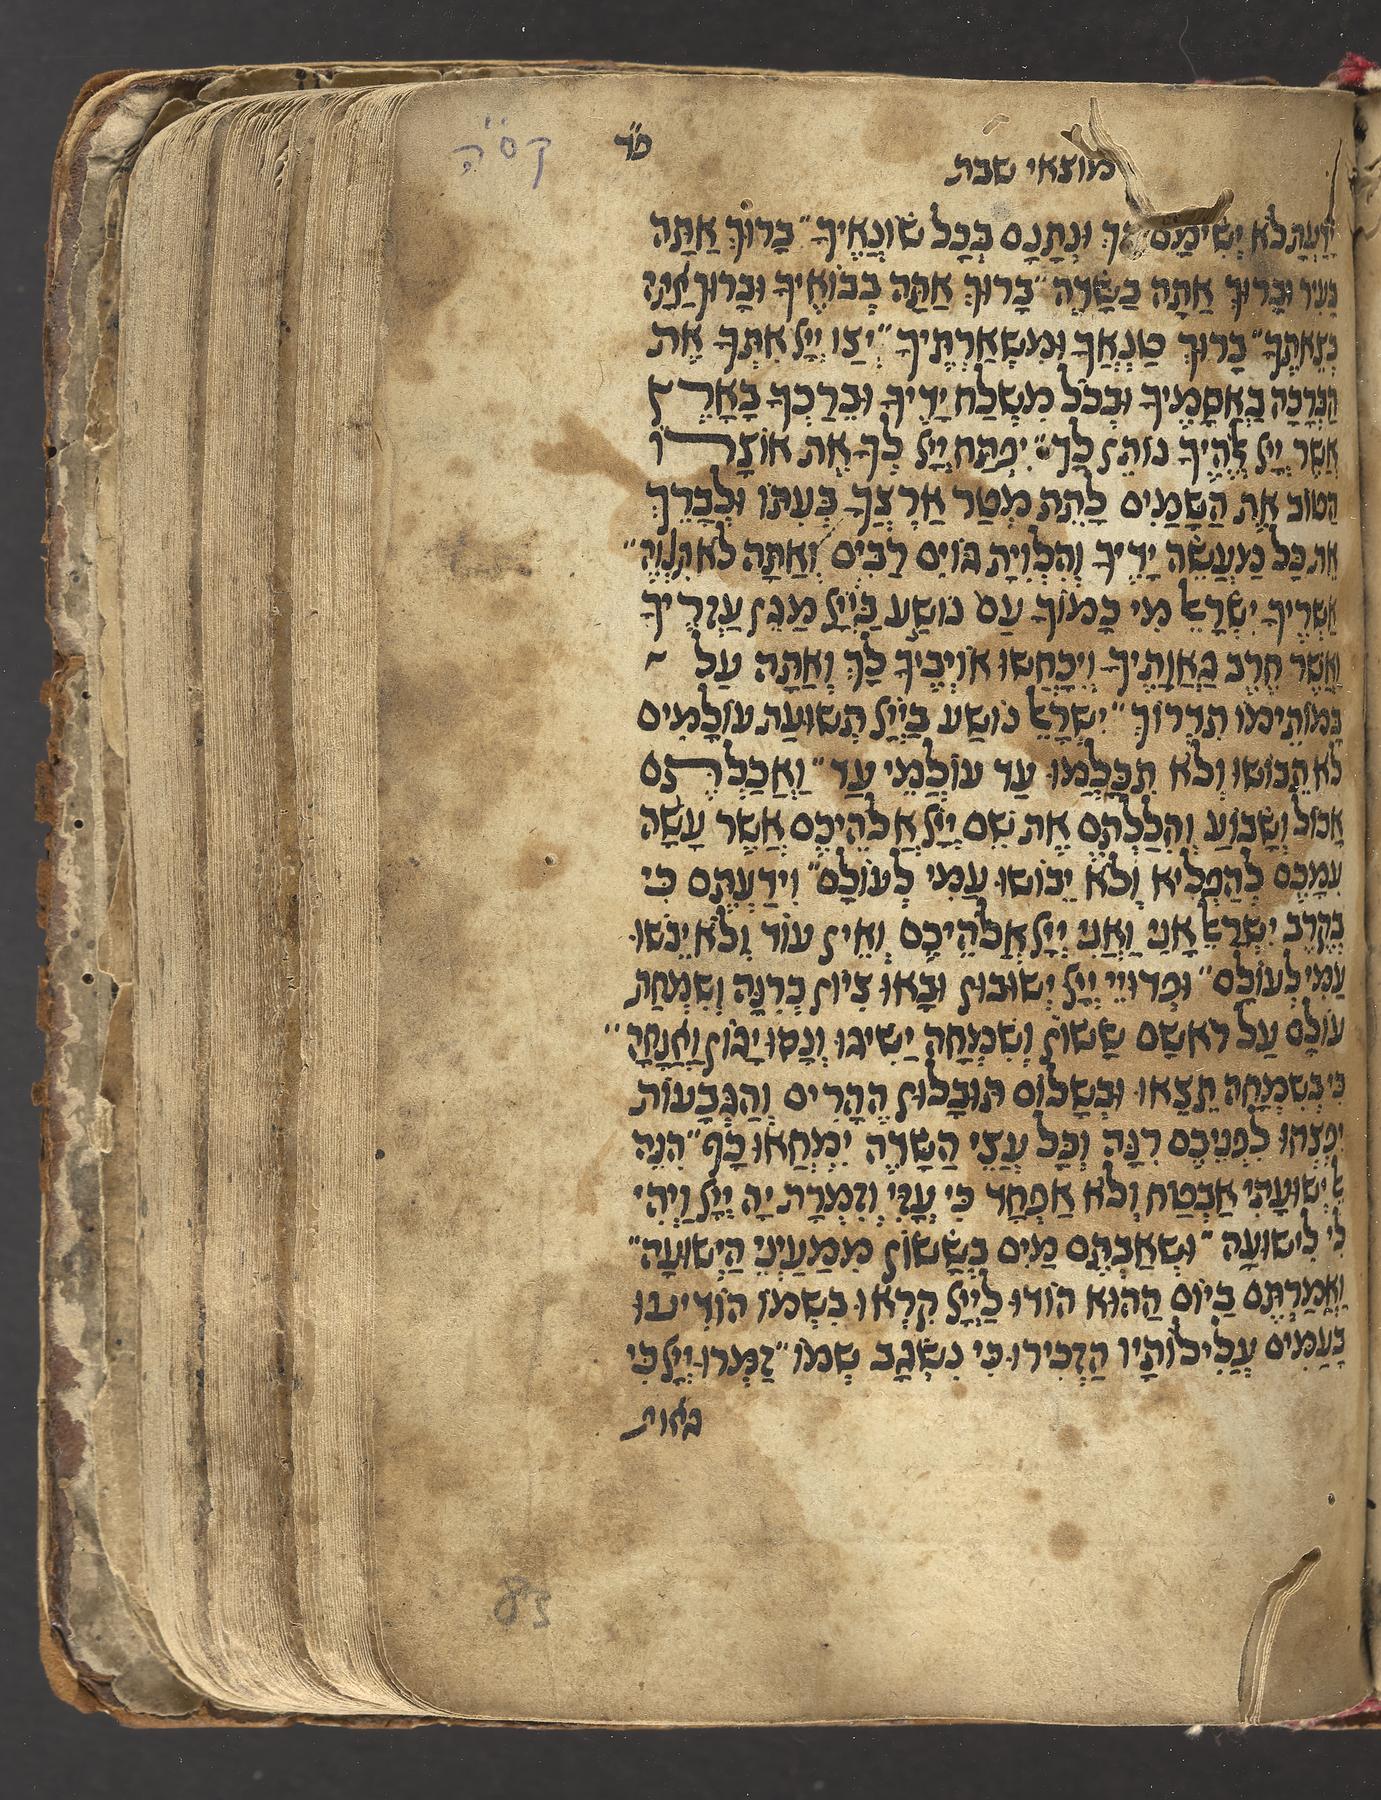 קס"ה
פ"ד
מוצאי שבת
יָדַעְתָּ לֹא יְשִׂימָם בָּךְ וּנְתָנָם בְּכָל שׂוֹנְאֶיךָ" בָּרוּךְ אַתָּה
בָּעִיר וּבָרוּךְ אַתָּה בַּשָּׂדֶה" בָּרוּךְ אַתָּה בְּבוֹאֶיךָ וּבָרוּךְ אַתָּה
בְּצֵאתֶךָ" בָּרוּךְ טַנְאֲךָ וּמִשְׁאַרְתֶּיךָ" יְצַו יְיָ אִתְּךָ אֶת
הַבְּרָכָה בַּאֲסָמֶיךָ וּבְכֹל מִשְׁלַח יָדֶיךָ וּבֵרַכְךָ בָּאָרֶץ
אֲשֶׁר יְיָ אֱלֹהֶיךָ נוֹתֵן לָךְ" יִפְתַּח יְיָ לְךָ אֶת אוֹצָרוֹ
הַטּוֹב אֶת הַשָּׁמַיִם לָתֵת מְטַר אַרְצְךָ בְּעִתּוֹ וּלְבָרֵךְ
אֵת כָּל מַעֲשֵׂה יָדֶיךָ וְהִלְוִיתָ גּוֹיִם רַבִּים וְאַתָּה לֹא תִלְוֶה"
אַשְׁרֶיךָ יִשְׂרָאֵל מִי כָמוֹךָ עַם נוֹשַׁע בַּיְיָ מָגֵן עֶזְרֶיךָ
וַאֲשֶׁר חֶרֶב גַּאֲוָתֶיךָ וְיִכָּחֲשׁוּ אוֹיְבֶיךָ לָךְ וְאַתָּה עַל
בָּמוֹתֵימוֹ תִדְרוֹךְ" יִשְׂרָאֵל נוֹשַׁע בַּיְיָ תְּשׁוּעַת עוֹלָמִים
לֹא תֵבוֹשׁוּ וְלֹא תִכָּלְמוּ עַד עוֹלְמֵי עַד" וַאֲכַלְתֶּם
אָכוֹל וְשָׂבוֹעַ וְהִלַּלְתֶּם אֶת שֵׁם יְיָ אֱלֹהֵיכֶם אֲשֶׁר עָשָׂה
עִמָּכֶם לְהַפְלִיא וְלֹא יֵבוֹשׁוּ עַמִּי לְעוֹלָם" וִידַעְתֶּם כִּי
בְקֶרֶב יִשְׂרָאֵל אָנִי וַאֲנִי יְיָ אֱלֹהֵיכֶם וְאֵין עוֹד וְלֹא יֵבֹשׁוּ
עַמִּי לְעוֹלָם" וּפְדוּיֵי יְיָ יְשׁוּבוּן וּבָאוּ צִיּוֹן בְּרִנָּה וְשִׂמְחַת
עוֹלָם עַל רֹאשָׁם שָׂשׂוֹן וְשִׂמְחָה יַשִּׂיגוּ וְנָסוּ יָגוֹן וַאֲנָחָה"
כִּי בְשִׂמְחָה תֵצֵאוּ וּבְשָׁלוֹם תּוּבָלוּן הֶהָרִים וְהַגְּבָעוֹת
יִפְצְחוּ לִפְנֵיכֶם רִנָּה וְכָל עֲצֵי הַשָּׂדֶה יִמְחֲאוּ כָף" הִנֵּה
אֵל יְשׁוּעָתִי אֶבְטַח וְלֹא אֶפְחָד כִּי עָזִּי וְזִמְרָת יָהּ יְיָ וַיְהִי
לִי לִישׁוּעָה" וּשְׁאַבְתֶּם מַיִם בְּשָׂשׂוֹן מִמַּעַיְנֵי הַיְשׁוּעָה"
וַאֲמַרְתֶּם בַּיּוֹם הַהוּא הוֹדוּ לַיְיָ קִרְאוּ בִשְׁמוֹ הוֹדִיעוּ
בָעַמִּים עֲלִילוֹתָיו הַזְכִּירוּ כִּי נִשְׂגָּב שְׁמוֹ" זַמְּרוּ יְיָ כִּי
גאות
83